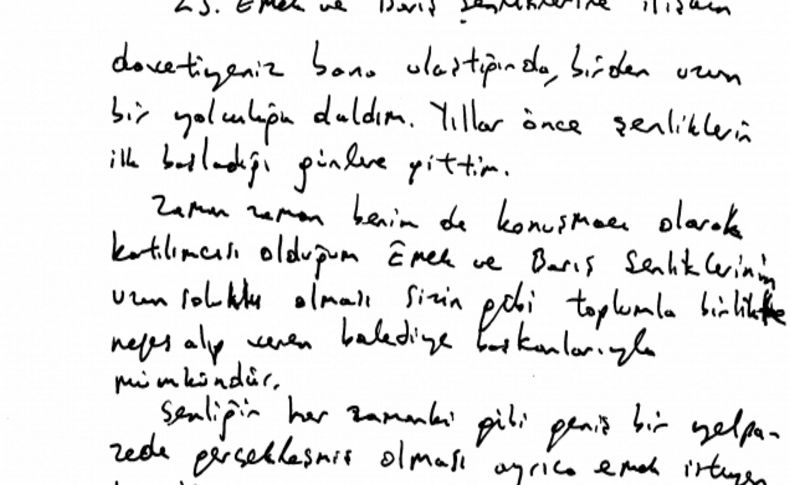 23. Emek ve Barış Şenliklerine ilişkin
davetiyeniz bana ulaştığında, birden uzun
bir yolculuğa daldım. Yıllar önce şenliklerin
ilk başladığı günlere gittim.
Zaman zaman benim de konuşmacı olarak
katılımcısı olduğum Emek ve Barış Şenliklerinin
uzun soluklu olması sizin gibi toplumla birlikte
nefes alıp veren belediye başkanlarıyla
mümkündür.
Şenliğin her zamanki gibi geniş bir yelpa-
zede gerçekleşmiş olması ayrıca emek isteyen